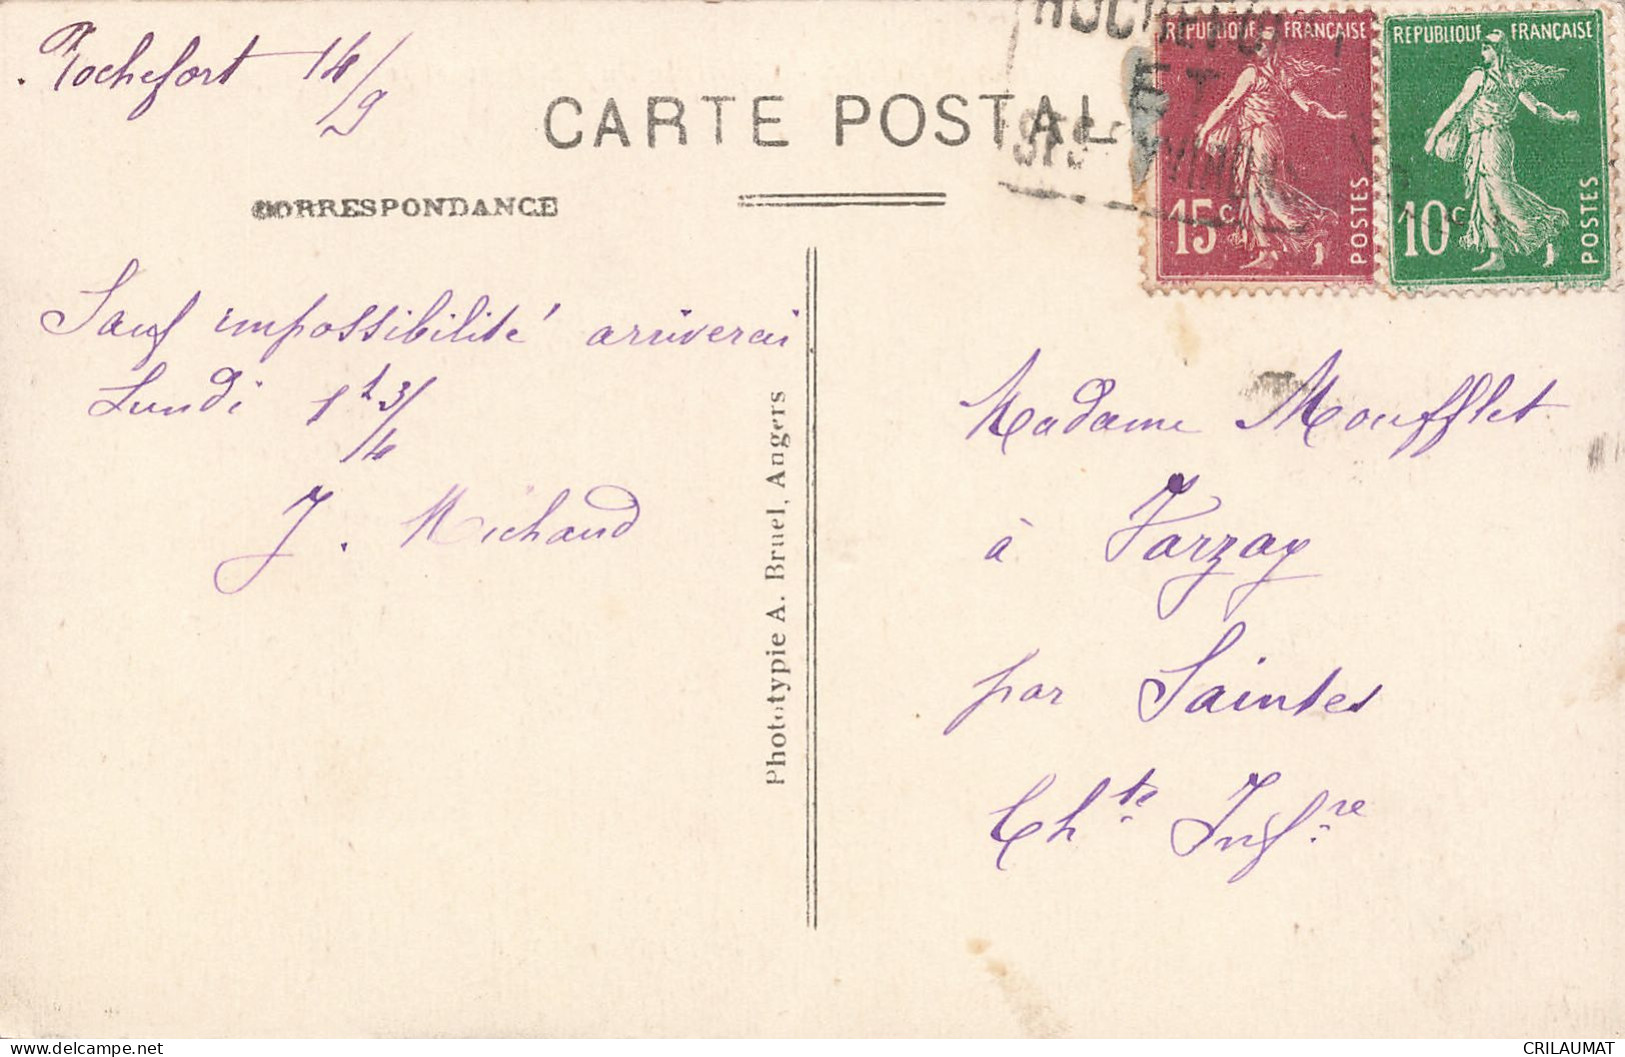 Rochefort 14/9
CARTE POSTALE
CORRESPONDANCE
Sauf impossibilité arriverai
Lundi 1h 3/4
J. Michaud
Phototypie A. Bruel, Angers
REPUBLIQUE FRANÇAISE
15c
POSTES
REPUBLIQUE FRANÇAISE
10c
POSTES
ET
Madame Moufflet
à Varzay
par Saintes
Chte Infre
CRILAUMAT